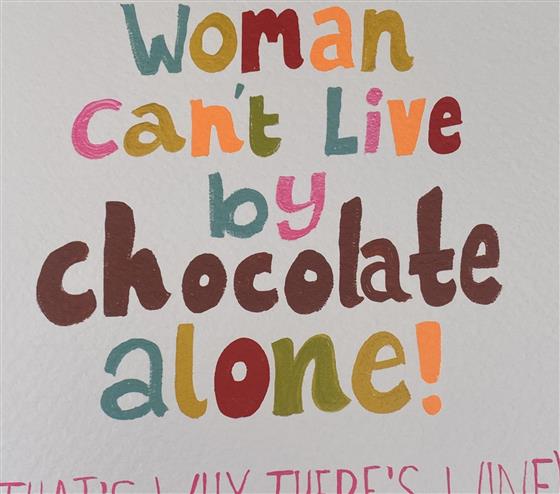 Woman
can't Live
by
chocolate
alone!
THAT'S WHY THERE'S WINE)